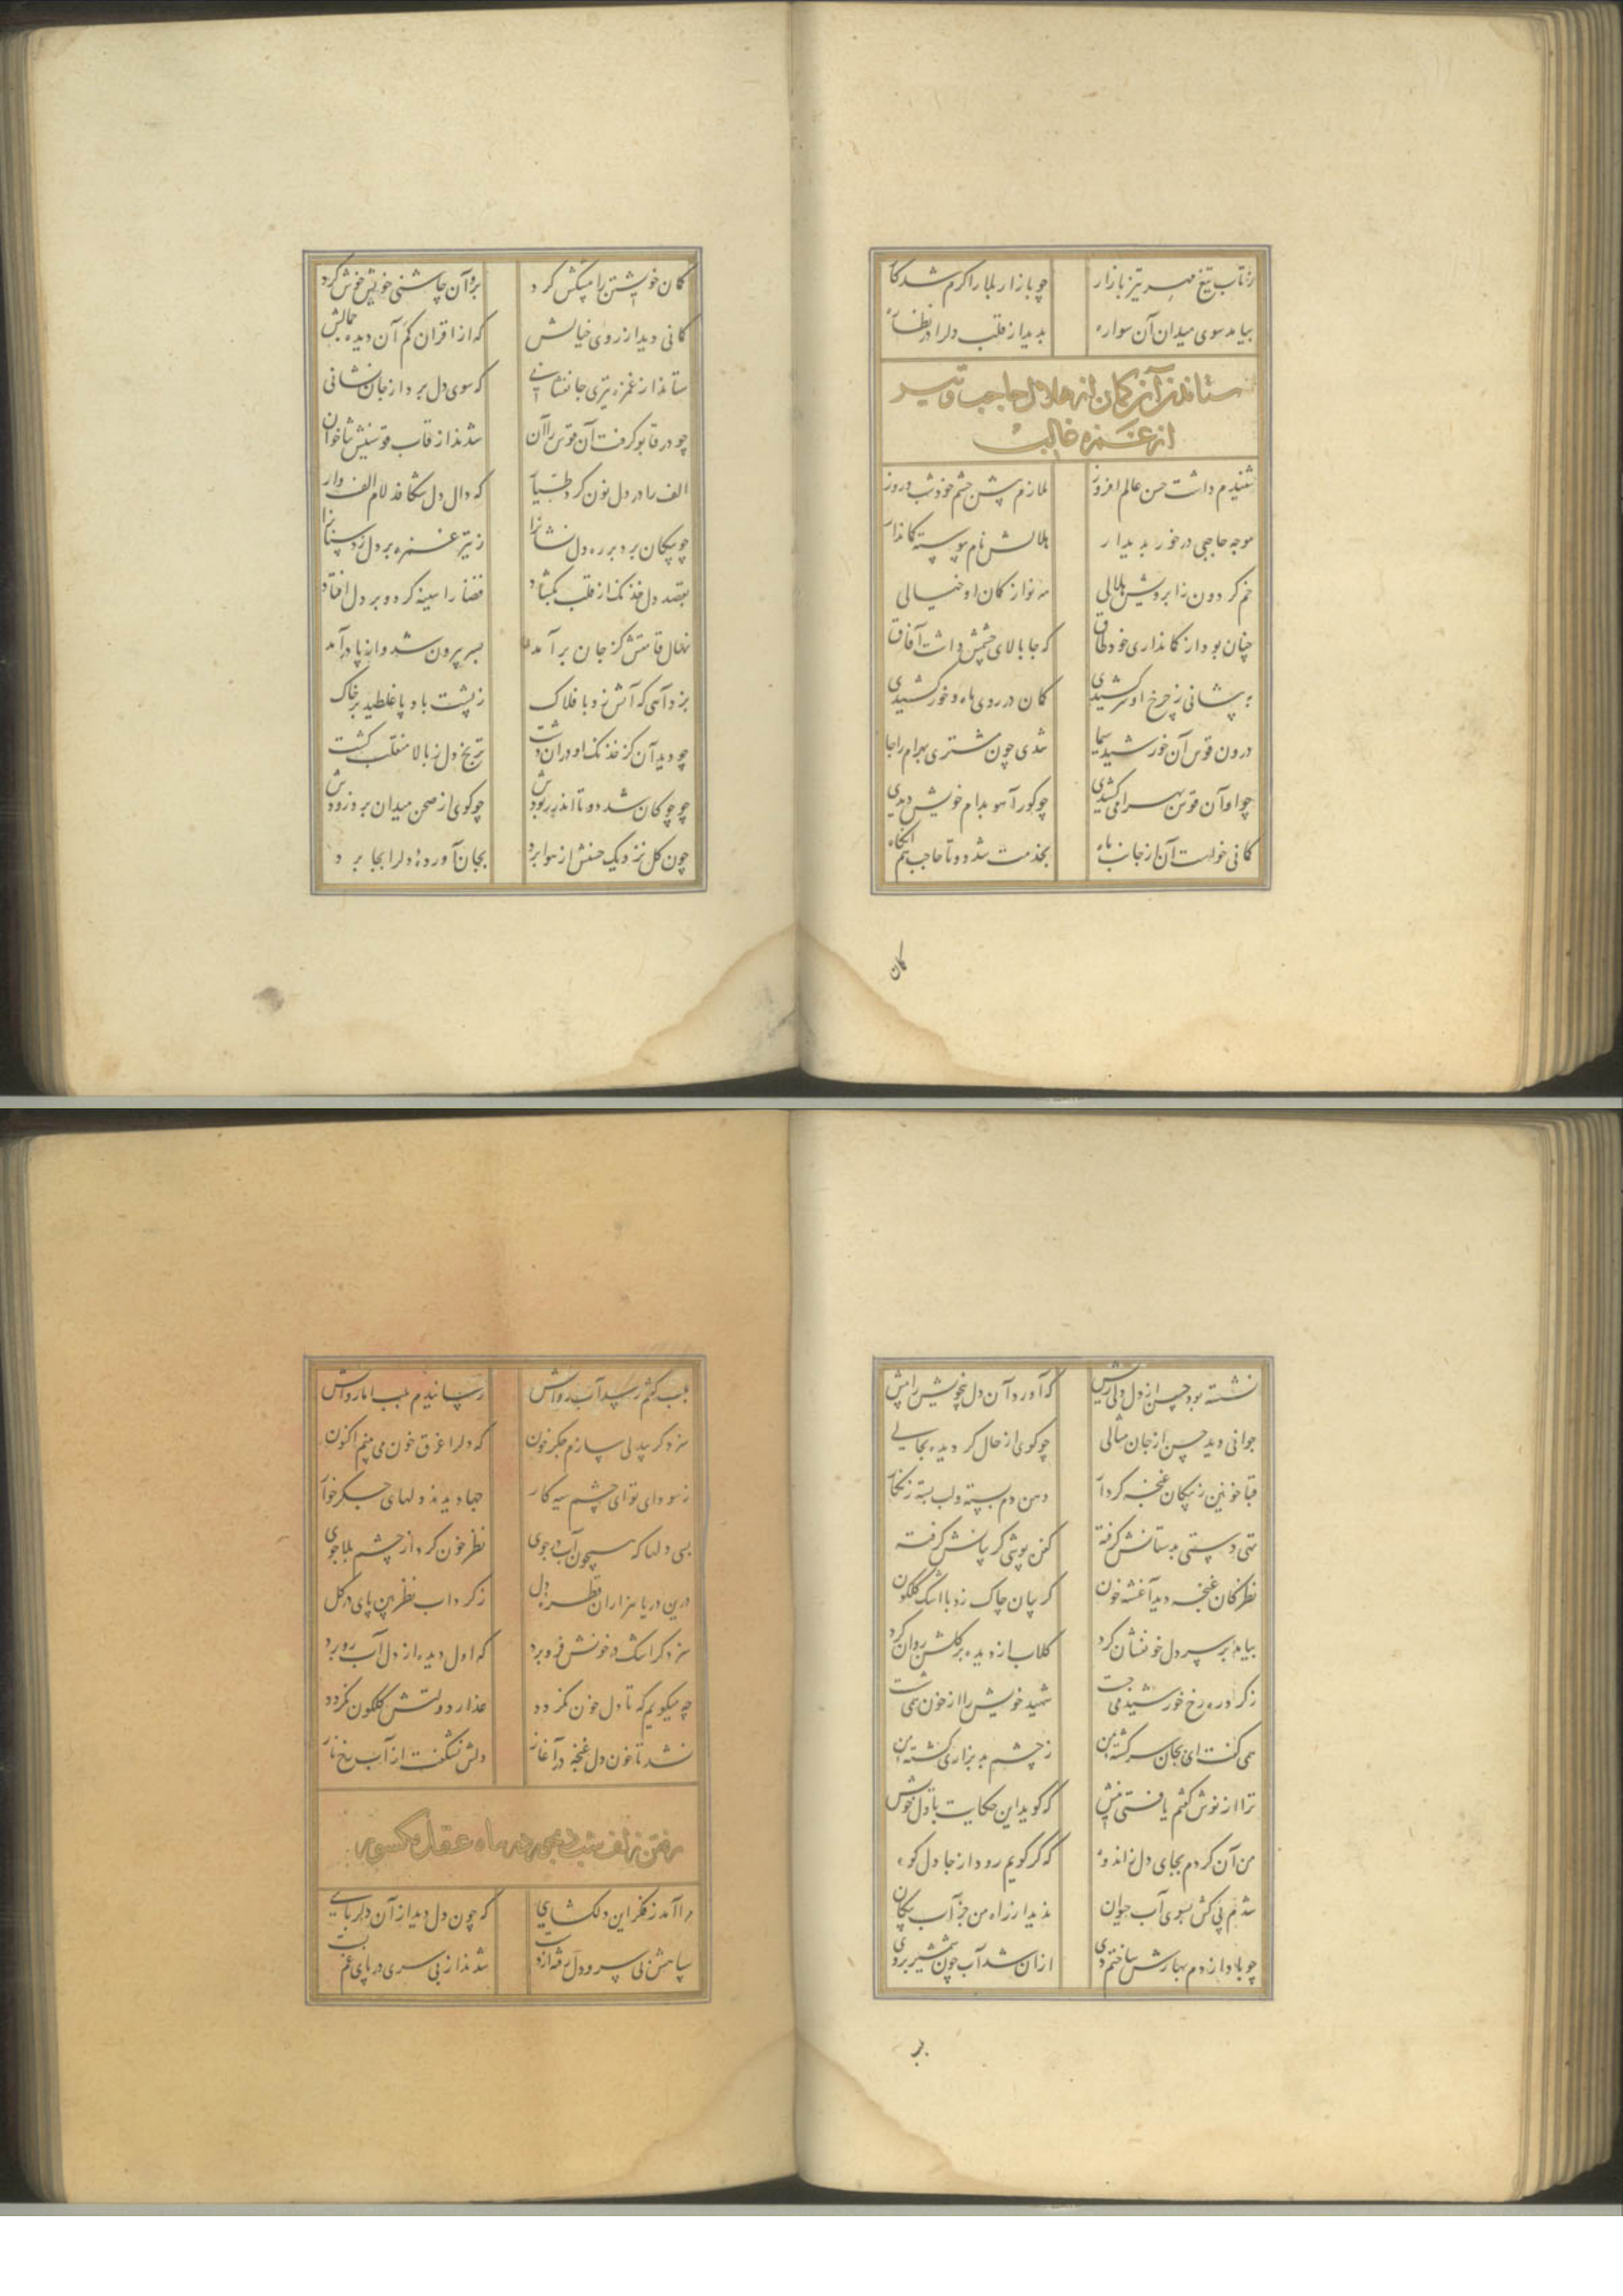 ز تاب تیغ مهر تیز بازار چو بازار بلا را گرم شد کار
بیامد سوی میدان آن سواره بدید از قلب دلرا در نظاره
ستاندن آن کمان از هلال حاجب و تیر
از غمزه خالب
شنیدم داشت حسن عالم افروز ملازم پیش چشم خود شب و روز
موجه حاجبی در خور بدیدار هلالش نام پیوسته کماندار
خم گردون ز ابرویش هلالی مه نو از کمان او خیالی
چنان بود از کمانداری خود طاق که جا بالای چشمش داشت آفاق
به پیشانی ز چرخ او سر کشیدی کمان در روی ماه و خور کشیدی
درون قوس آن خورشید سیما شدی چون مشتری بهرام را جا
چو او آن قوس بهرامی کشیدی چو گور آهو بدام خویش دیدی
کمانی خواست آن از جانب ماه بخدمت شد دو تا حاجب هم آنگاه
کمان
کمان خویشتن را پیشکش کرد برو آن چاشنی خویش خوش کرد
کمانی دید از روی خیالش که از اقران کم آن دیده جمالش
ستاند از غمزه تیری جانفشانی که سوی دل برد از جان نشانی
چو در قابو گرفت آن قوس را آن شدند از قاب قوسینش ثناخوان
الف را در دل نون کرد طیار که دال دل شکافد لام الف وار
چو پیکان برد بر ره دل نشانرا ز تیر غمزه بر دل زد سنانرا
بقصد دل خدنگ از قلب بگشاد قضا را سینه کرد و بر دل افتاد
نهال قامتش کز جان برآمد بسر بیرون شد و از پا درآمد
بزد آهی که آتش زد با فلاک ز پشت باد پا غلطید بر خاک
چو دید آن کز خدنگ او در آن دشت ترنج دل ز بالا منقلب گشت
چو چوگان شد دوتا اندر ربودش چو گوی از صحن میدان برد زودش
چون گل نزدیک حسنش از هوا برد بجان آورده دلرا بجا برد
نشسته بود حسن از دل دلی ریش که آورد آن دل خویش را پیش
جوانی دید حسن از جان مثالی چو گوی از حال گردیده بحالی
قبا خونین ز پیکان غنچه کردار دهن دم بسته و لب بسته زنگار
تهی دستی بدستانش گرفته کفن پوشی گریبانش گرفته
نظر کان غنچه دید آغشته خون گریبان چاک زد با اشک گلگون
بیامد بر سر دل خونفشان کرد گلاب از دیده بر گلشن روان کرد
ز گرد ره رخ خورشید می جست شهید خویش را از خون همی شست
همی گفت ای بجان سرگشته من ز چشم بد بزاری کشته من
ترا از نوش گفتم یافتی نیش که گوید این حکایت با دل خویش
من آن کردم بجای دل ز اندوه که گر گویم رود از جا دل کوه
شدم پی کش بسوی آب حیوان ندید از راه من جز آب پیکان
چو باد از دم بهارش ساختم دی از آن شد آب چون شمشیر بر وی
بلب گفتم رسد آب روانش رسانیدم بلب اما روانش
سزد گر بیدلی سازم جگر خون که دلرا غرق خون می بینم اکنون
ز سودای تو ای چشم سیه کار جها دیدند دلهای جگر خوار
بسی دلها که همچون آب در جوی نظر خون کرد از چشم بلا جوی
درین دریا هزاران قطره دل ز گرداب نظر بین پای در گل
سزد گر اشک در خونش فرو برد که اول دیده از دل آب رو برد
چه میگویم که تا دل خون نگردد عذار دولتش گلگون نگردد
نشد تا خون دل غنچه در آغاز دلش نشگفت از آب رخ باز
رفتن زلف شب دیجور در ماه عقل مکسور
مرا آمد ز فکر این دلگشایی که چون دل دید از آن دلربایی
سپاهش بی سر و دل رفته از دست شدند از بی سری در پای غم پست